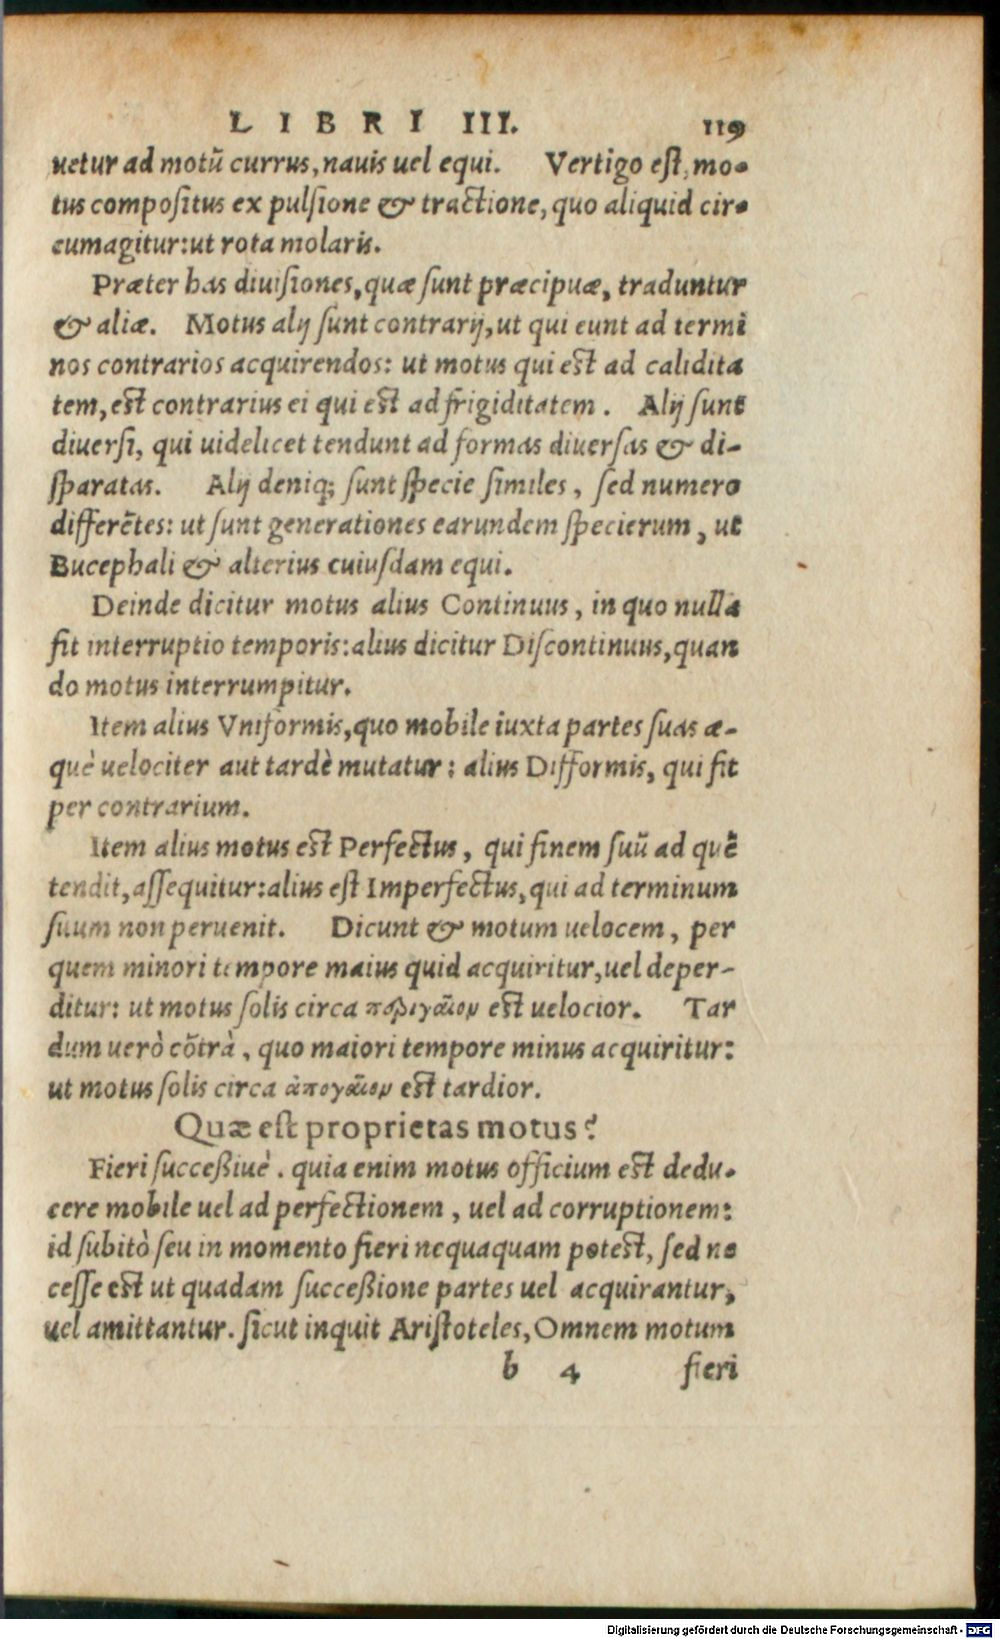 LIBRI III. 119
uetur ad motũ currus, nauis uel equi. Vertigo est, mo-
tus compositus ex pulsione & tractione, quo aliquid cir-
cumagitur: ut rota molaris.
Præter has diuisiones, quæ sunt præcipuæ, traduntur
& aliæ. Motus alij sunt contrarij, ut qui eunt ad termi
nos contrarios acquirendos: ut motus qui est ad calidita
tem, est contrarius ei qui est ad frigiditatem. Alij sunt
diuersi, qui uidelicet tendunt ad formas diuersas & di-
sparatas. Alij deniq; sunt specie similes, sed numero
differẽtes: ut sunt generationes earundem specierum, ut
Bucephali & alterius cuiusdam equi.
Deinde dicitur motus alius Continuus, in quo nulla
fit interruptio temporis: alius dicitur Discontinuus, quan
do motus interrumpitur.
Item alius Vniformis, quo mobile iuxta partes suas æ-
què uelociter aut tardè mutatur: alius Difformis, qui fit
per contrarium.
Item alius motus est Perfectus, qui finem suũ ad quẽ
tendit, assequitur: alius est Imperfectus, qui ad terminum
suum non peruenit. Dicunt & motum uelocem, per
quem minori tempore maius quid acquiritur, uel deper-
ditur: ut motus solis circa περιγαῖον est uelocior. Tar
dum uerò cõtrà, quo maiori tempore minus acquiritur:
ut motus solis circa ἀπογαῖον est tardior.
Quæ est proprietas motus?
Fieri succeßiuè. quia enim motus officium est dedu-
cere mobile uel ad perfectionem, uel ad corruptionem:
id subitò seu in momento fieri nequaquam potest, sed ne
cesse est ut quadam succeßione partes uel acquirantur,
uel amittantur. sicut inquit Aristoteles, Omnem motum
b 4 fieri
Digitalisierung gefördert durch die Deutsche Forschungsgemeinschaft - DFG